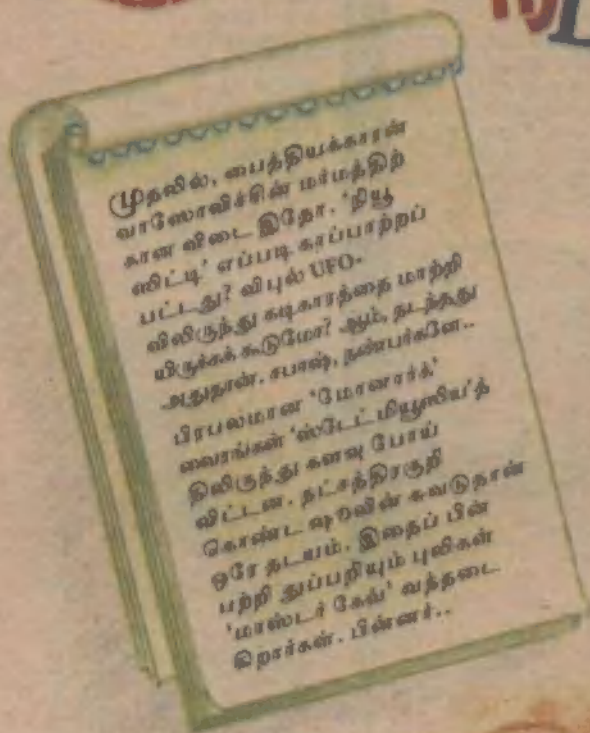 முதலில், பைத்தியக்காரன்
வாஸோவிச்சின் மர்மத்திற்
கான விடை இதோ. 'நியூ
ஸிட்டி' எப்படி காப்பாற்றப்
பட்டது? விபுல் UFO-
விலிருந்து கடிகாரத்தை மாற்றி
யிருக்கக் கூடுமோ? ஆம், நடந்தது
அதுதான். சபாஷ், நண்பர்களே..
பிரபலமான 'மோனார்க்'
வைரங்கள் 'ஸ்டேட் மியூஸிய'த்
திலிருந்து களவு போய்
விட்டன. நட்சத்திரகுறி
கொண்ட ஷூவின் சுவடுதான்
ஒரே தடயம். இதைப் பின்
பற்றி துப்பறியும் புலிகள்
'மாஸ்டர் கேவ்' வந்தடை
கிறார்கள். பின்னர்..